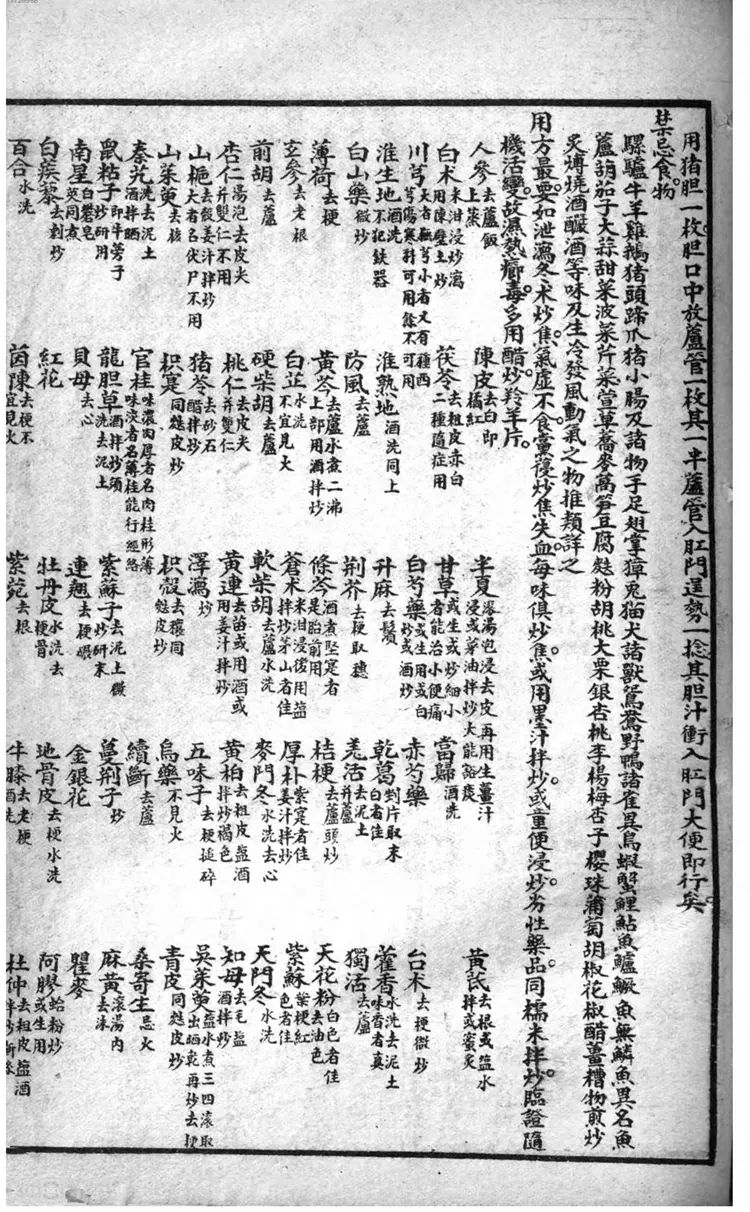 用猪胆一枚胆口中放蘆管一枚其一半蘆管入肛門逞勢一捻其胆汁衝入肛門大便即行矣
禁忌食物
騾驢牛羊雞鵝猪頭蹄爪猪小腸及諸物手足翅掌獐兎猫犬諸獸鴛鴦野鴨諸雀異鳥蝦蟹鯉鮎魚鱸鱖魚無鱗魚異名魚
蘆葫茄子大蒜甜菜波菜芹菜營草蕎麥萵笋豆腐麩粉胡桃大栗銀杏桃李楊梅杏子櫻珠蒲萄胡椒花椒醋薑糟物煎炒
炙煿燒酒釅酒等味及生冷發風動氣之物推類詳之
用方最要如泄瀉冬米炒焦氣虛不食黨蓡炒焦失血每味俱炒焦或用墨汁拌炒或童便浸炒劣性藥品同糯米拌炒臨證隨
機活變故濕熱癤毒多用醋炒羚羊片
人參去蘆飯上蒸 陳皮去白即橘紅 半夏滚湯泡浸去皮再用生薑汁浸或茅油拌炒大能豁痰 黃芪去根或盐水拌或蜜炙
白术米泔浸炒瀉用陳壁土炒 茯苓去粗皮赤白二種隨症用 甘草或生或炒細小者能治小便痛 當歸酒洗 台术去梗微炒
川芎大者撫芎小者又有種西芎傷寒科可用餘不可用 白芍藥或生用或白炒或酒炒 赤芍藥 藿香水洗去泥土味香者真
淮生地酒洗不犯鉄器 淮熟地酒洗同上 升麻去鬚 乾葛剉片取末白者佳 獨活去蘆
白山藥微炒 防風去蘆 荆芥去梗取穗 羌活去泥土并蘆 天花粉白色者佳去油色
薄荷去梗 黃芩去蘆水煮二沸上部用酒拌炒 條芩酒煮堅寔者是胎前用 桔梗去蘆頭炒 紫蘇葉梗紅色者佳
玄參去老根 白芷水洗不宜見火 蒼术米泔浸復用盐拌炒茅山者佳 厚朴紫寔者佳姜汁拌炒 天門冬水洗
前胡去蘆 硬柴胡去蘆 軟柴胡去蘆水洗 麥門冬水洗去心 知母去毛盐酒拌炒
杏仁湯泡去皮尖并雙仁不用 桃仁去皮尖并雙仁 黃連去苗或用酒或用姜汁拌炒 黃柏去粗皮盐酒拌炒褐色 吳茱萸盐水煮三四滚取出晒乾再炒去梗
山梔去殼姜汁拌炒大者名伏尸不用 猪苓去砂石醋拌炒 澤瀉炒 五味子去梗搥碎 青皮同麩皮炒
山茱萸去核 枳寔同麩皮炒 枳殼去穰同麩皮炒 烏藥不見火 桑寄生忌火
秦艽洗去泥土酒拌晒 官桂味濃肉厚者名肉桂形薄味淡者名薄桂能行經絡 紫蘇子去泥土微炒研末 續斷去蘆 麻黃滚湯內去沫
鼠粘子即牛蒡子炒研用 龍胆草酒拌炒須洗去泥土 連翹去梗 蔓荊子炒 瞿麥
南星白礬皂莢同煮 貝母去心 牡丹皮水洗去梗骨 金銀花 阿膠蛤粉炒或生用
白蒺藜去刺炒 紅花 紫菀去根 地骨皮去梗水洗 杜仲去粗皮盐酒
百合水洗 茵陳去梗不宜見火 牛膝去老梗酒洗